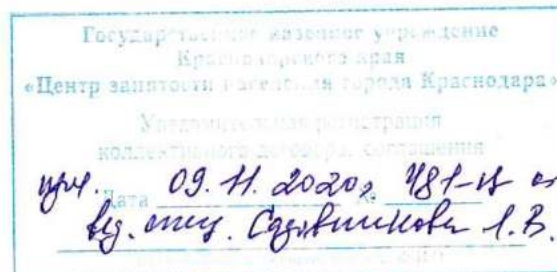 Государственное казенное учреждение
Краснодарского края
«Центр занятости населения города Краснодара»
Уведомительная регистрация
коллективного договора, соглашения
Дата 09.11.2020г № 481-Ц
вед. спец. Л.В.